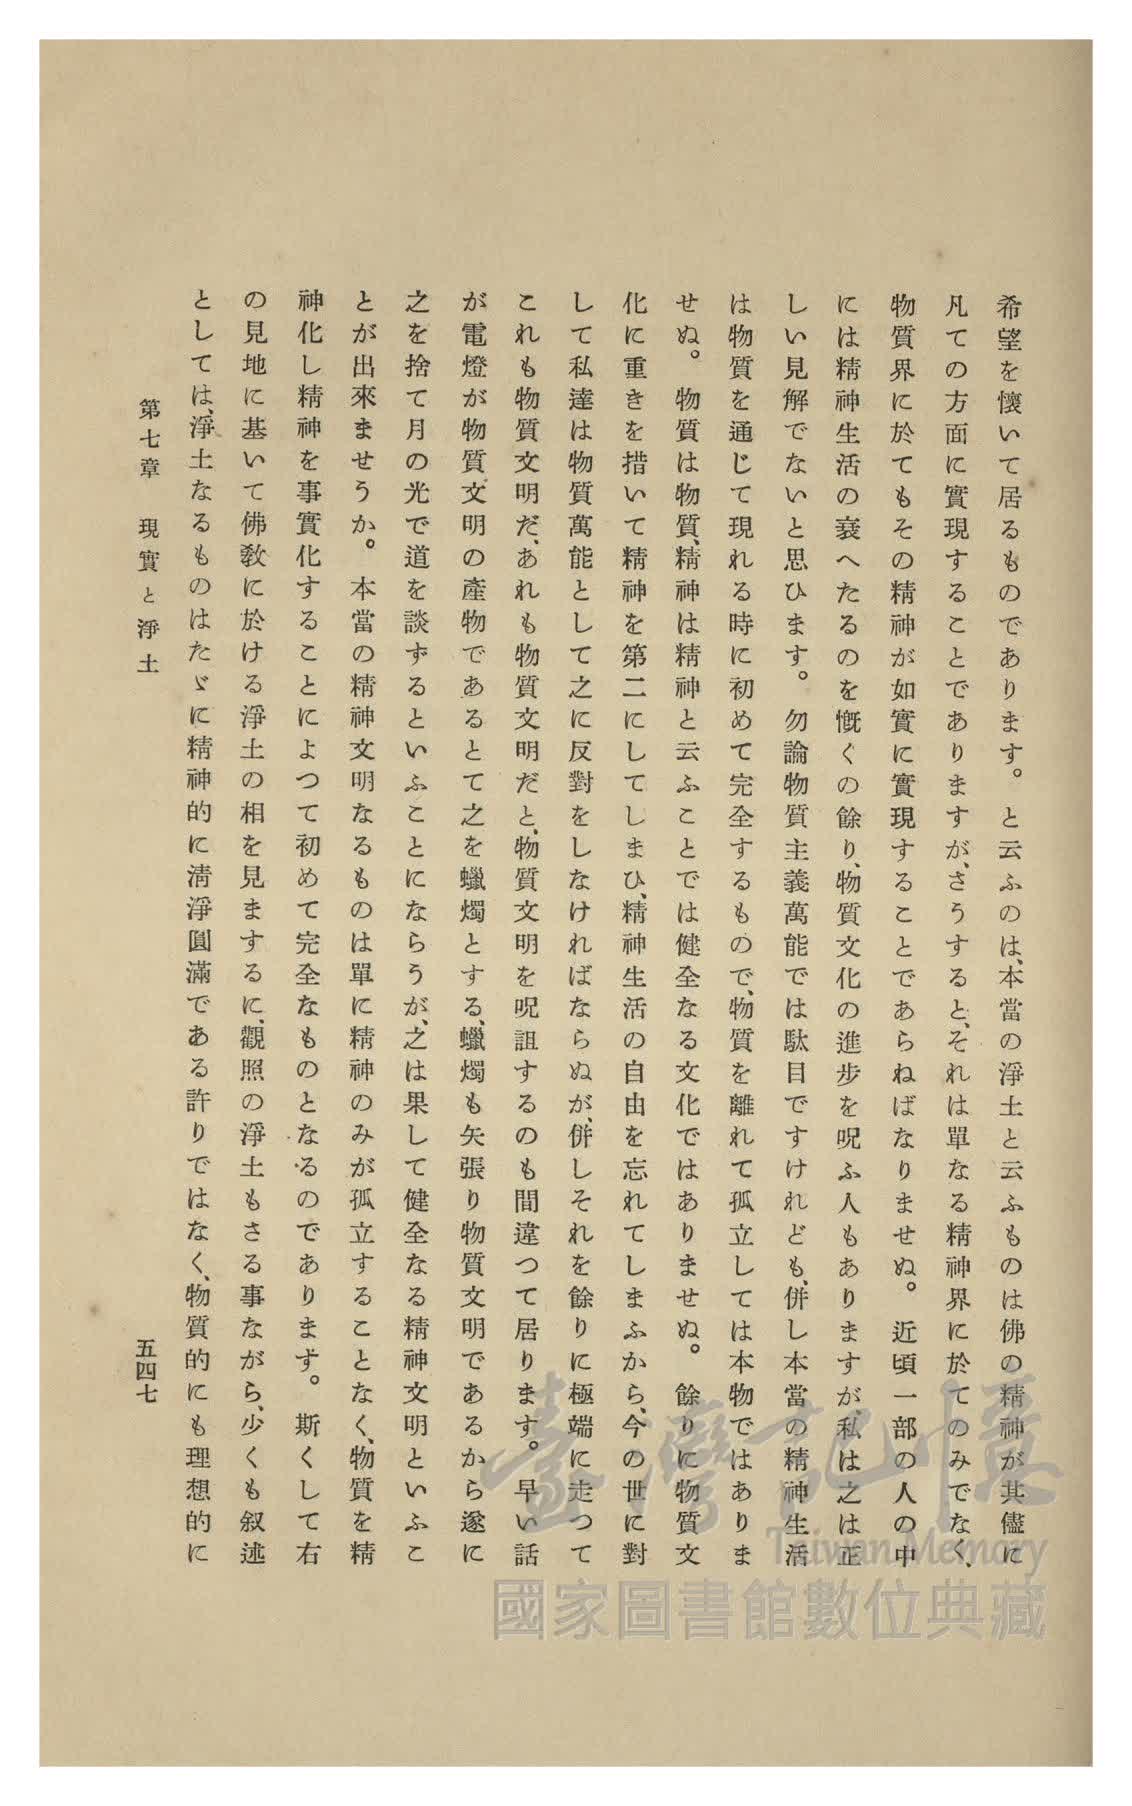 希望を懷いて居るものであります。と云ふのは、本當の淨土と云ふものは佛の精神が其儘に
凡ての方面に實現することでありますが、さうすると、それは單なる精神界に於てのみでなく、
物質界に於てもその精神が如實に實現することであらねばなりませぬ。近頃一部の人の中
には精神生活の衰へたるのを慨くの餘り、物質文化の進步を呪ふ人もありますが、私は之は正
しい見解でないと思ひます。勿論物質主義萬能では駄目ですけれども、併し本當の精神生活
は物質を通じて現れる時に初めて完全するもので、物質を離れて孤立しては本物ではありま
せぬ。物質は物質、精神は精神と云ふことでは健全なる文化ではありませぬ。餘りに物質文
化に重きを措いて精神を第二にしてしまひ、精神生活の自由を忘れてしまふから、今の世に對
して私達は物質萬能として之に反對をしなければならぬが、併しそれを餘りに極端に走つて
これも物質文明だ、あれも物質文明だと、物質文明を呪詛するのも間違つて居ります。早い話
が電燈が物質文明の產物であるとて之を蠟燭とする、蠟燭も矢張り物質文明であるから遂に
之を捨て月の光で道を談ずるといふことにならうが、之は果して健全なる精神文明といふこ
とが出來ませうか。本當の精神文明なるものは單に精神のみが孤立することなく、物質を精
神化し精神を事實化することによつて初めて完全なものとなるのであります。斯くして右
の見地に基いて佛敎に於ける淨土の相を見まするに、觀照の淨土もさる事ながら、少くも叙述
としては、淨土なるものはたゞに精神的に淸淨圓滿である許りではなく、物質的にも理想的に
第七章 現實と淨土
五四七
臺灣記憶
Taiwan Memory
國家圖書館數位典藏